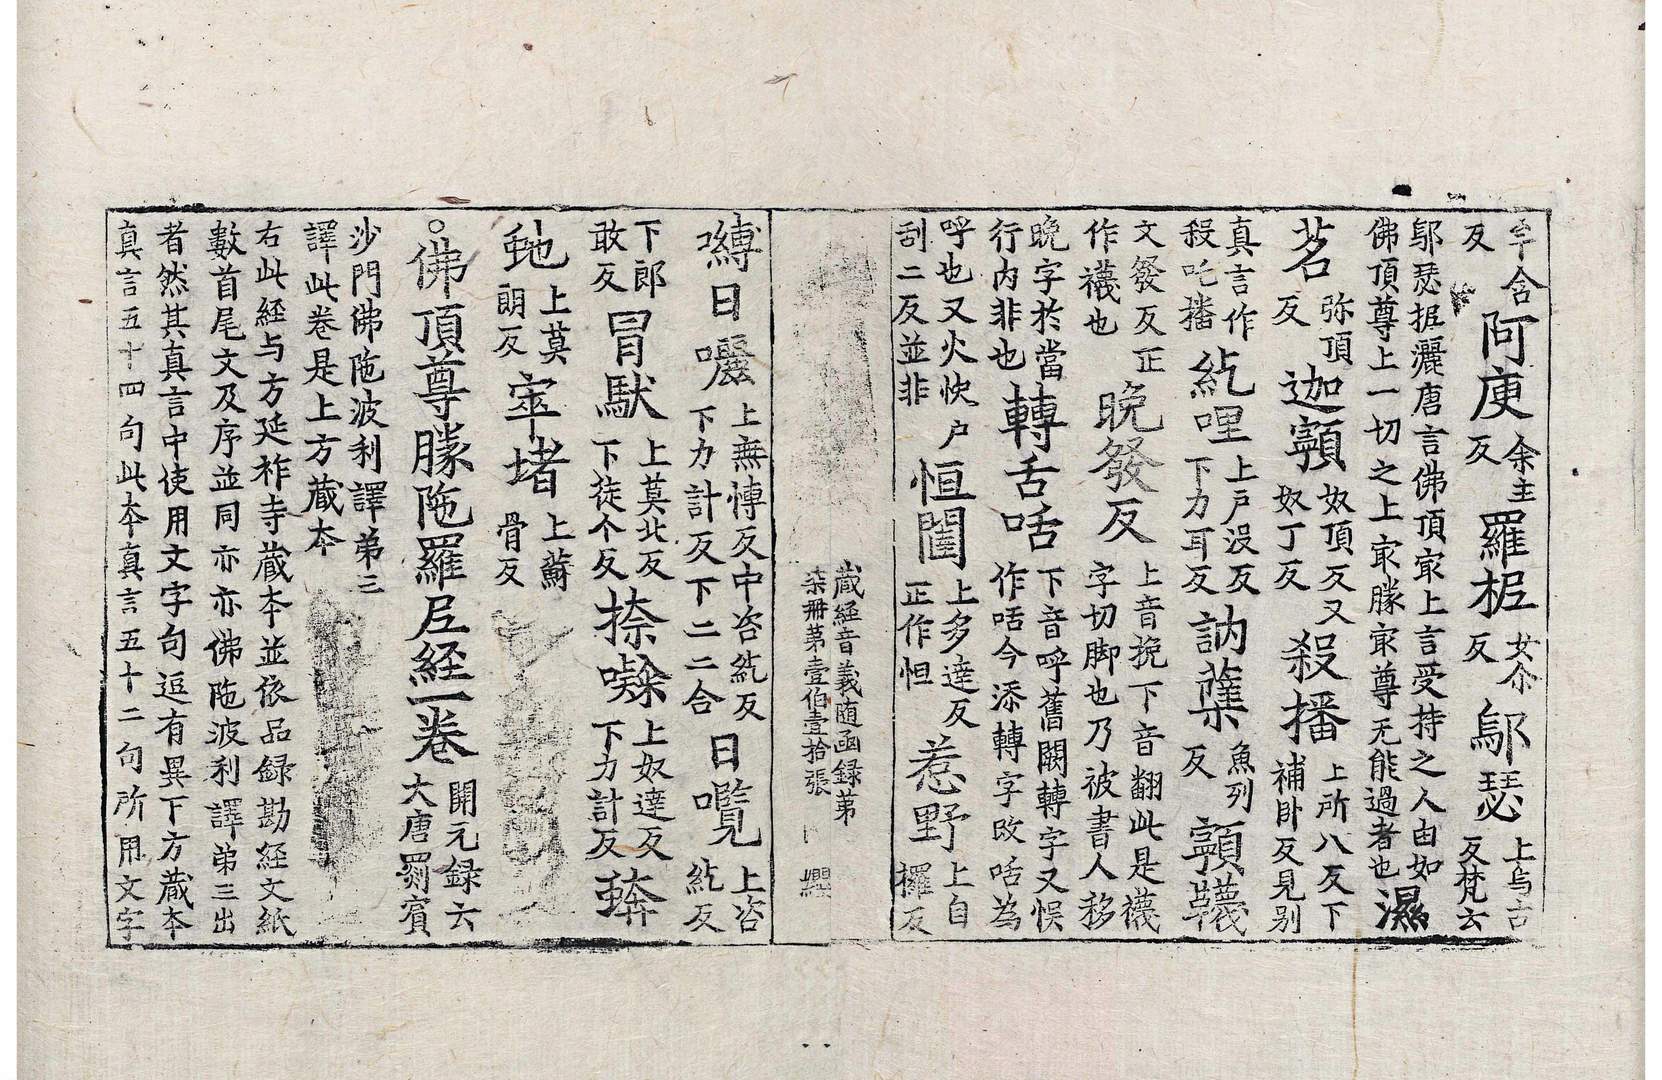 卒含反阿庾余主反羅抳女尒反鄔瑟上烏古反梵云
鄔瑟抳灑唐言佛頂㝡上言受持之人由如佛頂尊上一切之上㝡𦡱㝡尊无能過者也濕
茗弥頂反迦顊奴頂反又奴丁反殺播上所八反下補卧反見别
真言作殺吃播紇哩上戶没反下力耳反訥蘖魚列反顊韈
文發反正作襪也晚發反上音挽下音翻此是襪字切脚也乃被書人移
晚字於當行内非也轉舌咶下音呼舊闕轉字又悮作咶今添轉字改咶為
呼也又火快戶刮二反並非恒闥上多達反正作怛惹野上自攞反
藏經音義随函録弟柒冊第壹伯壹拾張
嚩日囇上無愽反中咨紇反下力計反下二二合日囕上咨紇反
下郎敢反冒馱上莫北反下徒个反捺㘑上奴達反下力計反䗬
虵上莫朗反窣堵上蘇骨反
。佛頂尊勝陁羅尼經一卷開元録云大唐罽賓
沙門佛陁波利譯弟三譯此卷是上方藏本
右此經与方延祚寺藏本並依品録勘經文紙
數首尾文及序並同亦亦佛陁波利譯弟三出
者然其真言中使用文字句逗有異下方藏本
真言五十四句此本真言五十二句所用文字